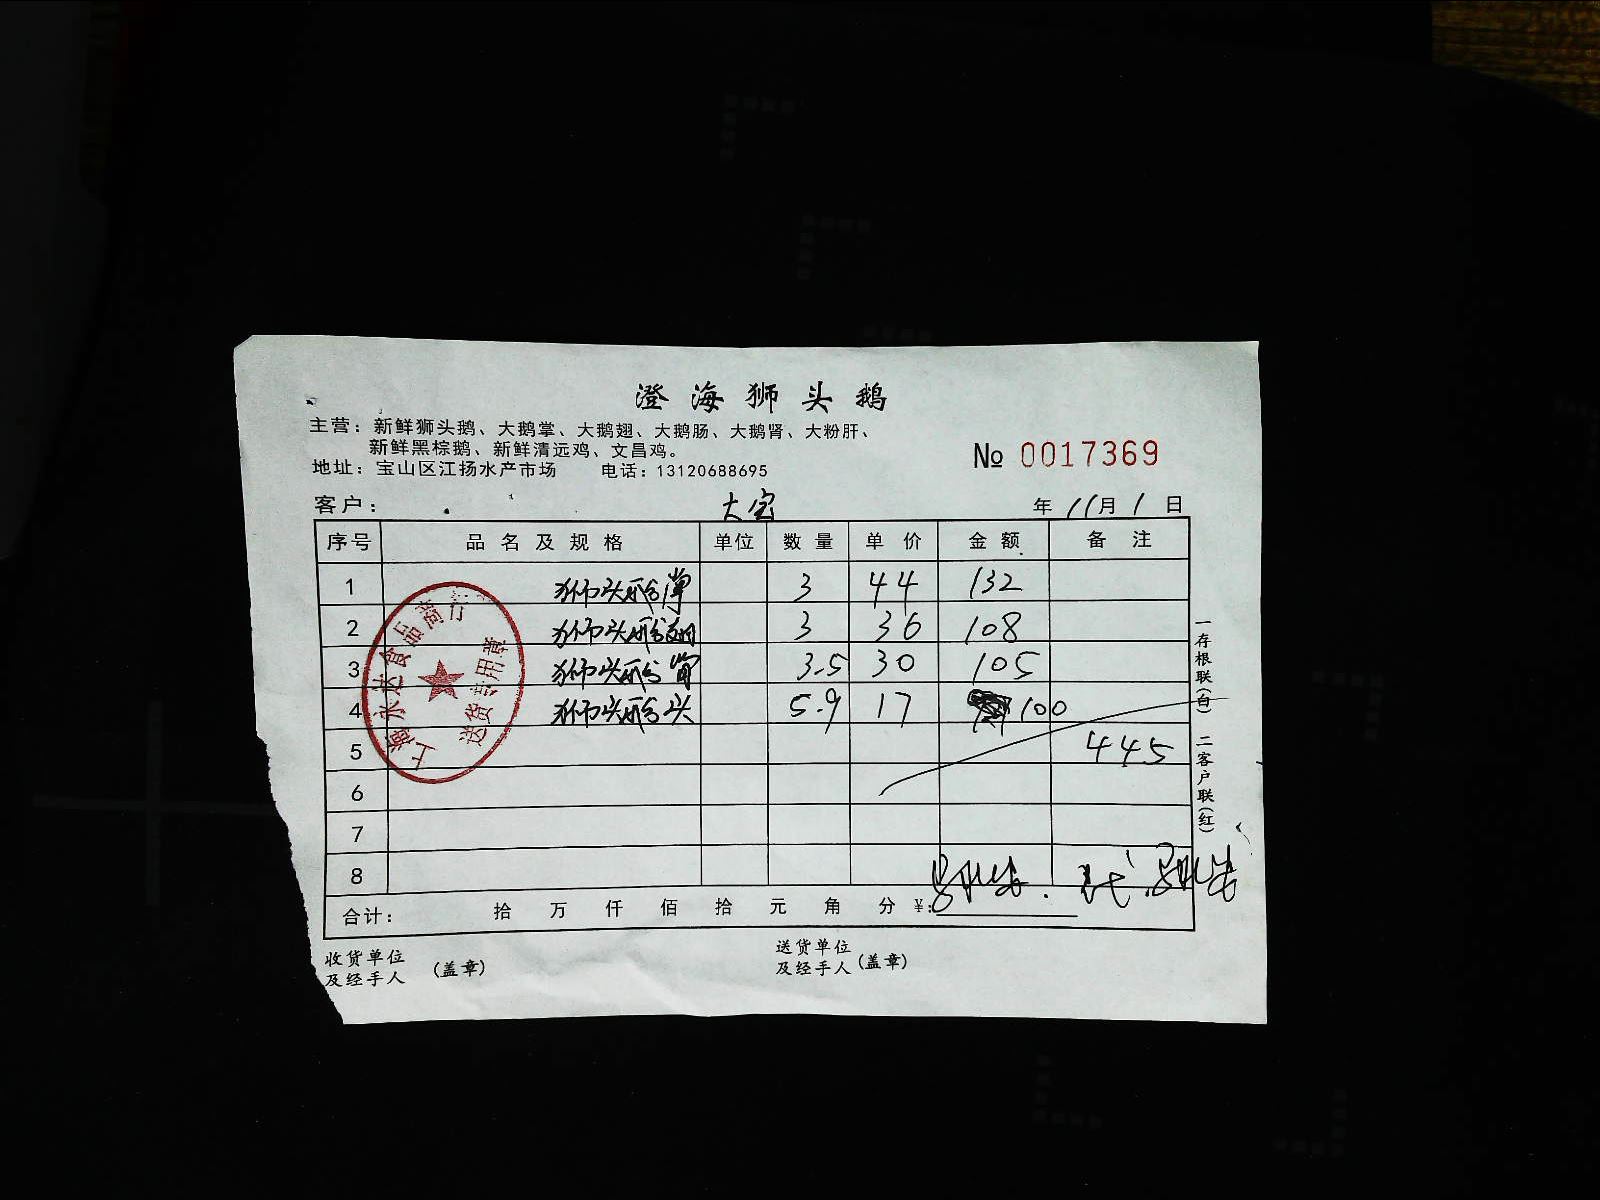 澄海狮头鹅
主营：新鲜狮头鹅、大鹅掌、大鹅翅、大鹅肠、大鹅肾、大粉肝、
新鲜黑棕鹅、新鲜清远鸡、文昌鸡。
地址：宝山区江扬水产市场 电话：13120688695
№ 0017369
客户： 大宝 年 11月 1 日
序号 品名及规格 单位 数量 单价 金额 备注
1 狮头鹅掌 3 44 132
2 狮头鹅翅 3 36 108
3 狮头鹅肾 3.5 30 105
4 狮头鹅头 5.9 17 100
5 445
6
7
8
合计： 拾 万 仟 佰 拾 元 角 分 ¥：
收货单位
及经手人 (盖章)
送货单位
及经手人 (盖章)
一存根联(白) 二客户联(红)
上海永达食品商行
送货专用章